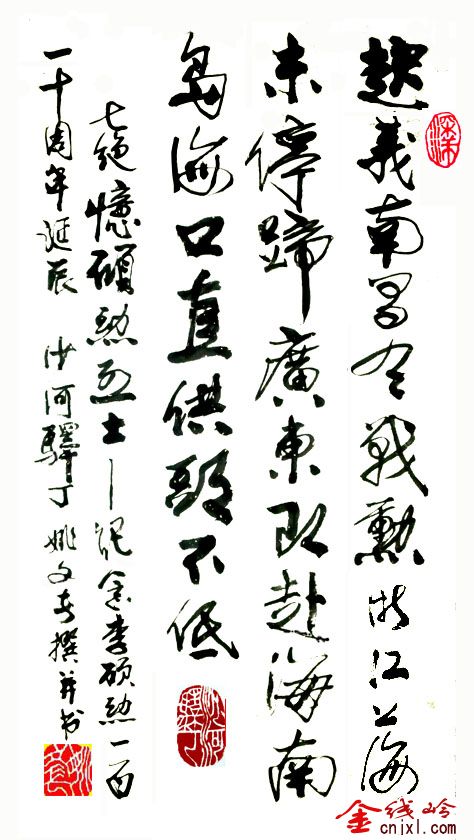 起義南昌戰勲浙江上海
未停蹄廣東改赴海南
島海口直供頭不低
七絕憶碩勲烈士—記念李硕勲一百
一十周年誕辰 沙河驛丁 姚文撰并书
金线岭
cnjxl.com